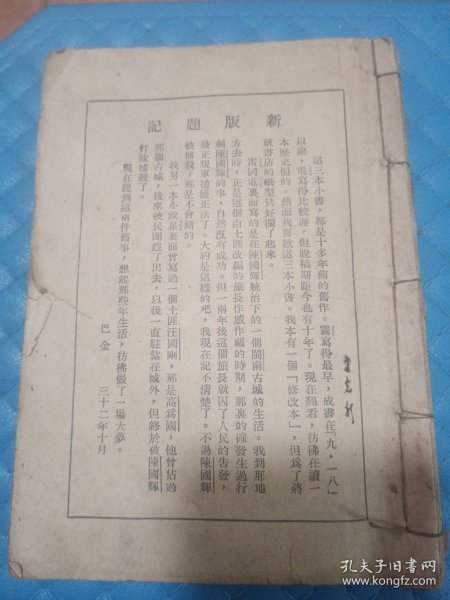 新版題記
這三本小書，都是十多年前的舊作。霧寫得最早，成書在「九·一八」
以前，電寫得比較遲，但脫稿期距今也有十年了。現在翻看，彷彿在讀一
本歷史似的。然而我喜歡這三本小書。我本有一個「修改本」，但爲了將
就書店的紙型只好擱了起來。
雷同電裏面寫的是在陳國輝統治下的一個閩南古城的生活。我到那地
方去時，正是這個由土匪改編的旅長作威作福的時期，那裏的確發生過行
刺陳國輝的事，自然沒有成功。但一兩年後這個旅長就因了人民的告發，
被正規軍捕獲正法了。大約是這樣的吧，我現在記不清楚了。不過陳國輝
被捕殺，那是不會錯的。
我另一本小說星裏面曾寫過一個土匪汪國剛，那是高爲國，他曾佔過
那個古城，後來被民團趕了出去，以後一直駐紮在城外，但終於被陳國輝
打敗捕殺了。
現在提到這兩件舊事，想起那些年生活，彷彿做了一場大夢。
巴金　三十二年十月
孔夫子旧书网
www.kongfz.com